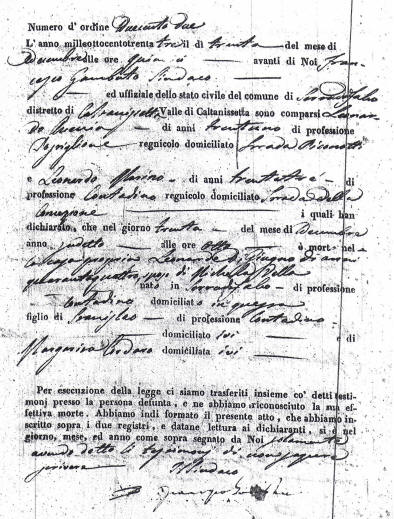 Numero d' ordine Duecento due
L' anno milleottocentotrenta tre il dì trenta del mese di
Decembre alle ore quindici avanti di Noi Fran-
cesco Sindaco
ed uffiziale dello stato civile del comune di Serradifalco
distretto di Caltanissetta Valle di Caltanissetta sono comparsi Leonar-
do di anni trentuno di professione
regnicolo domiciliato Strada
e Leonardo Marino di anni trentatre di
professione Contadino regnicolo domiciliato Strada della
Concezione i quali han
dichiarato, che nel giorno trenta del mese di Decembre
anno sudetto alle ore otto è mort nel
propria Leonardo di Giugno di anni
quarantaquattro, di Michela
nato in Serradifalco di professione
Contadino domiciliato in questa
figlio di di professione Contadino
domiciliato ivi e di
Margarita domiciliata ivi
Per esecuzione della legge ci siamo trasferiti insieme co' detti testi-
monj presso la persona defunta, e ne abbiamo riconosciuto la sua ef-
fettiva morte. Abbiamo indi formato il presente atto, che abbiamo in-
scritto sopra i due registri, e datane lettura ai dichiaranti, si è nel
giorno, mese, ed anno come sopra segnato da Noi solamente
avendo detto i testimonj di non sapere
scrivere Il Sindaco